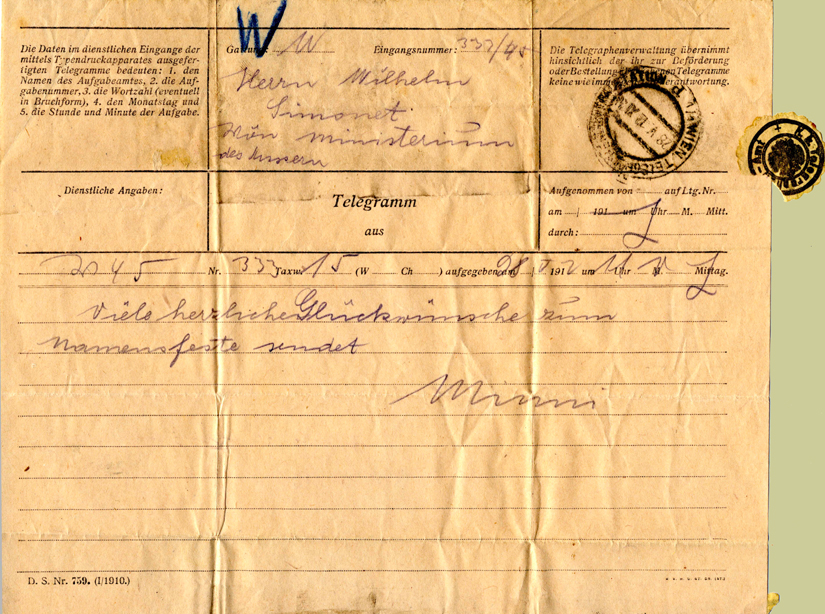 W
Die Daten im dienstlichen Eingange der
mittels Typendruckapparates ausgefer-
tigten Telegramme bedeuten: 1. den
Namen des Aufgabeamtes, 2. die Auf-
gabenummer, 3. die Wortzahl (eventuell
in Bruchform), 4. den Monatstag und
5. die Stunde und Minute der Aufgabe.
W Eingangsnummer: 332/45
Herrn Wilhelm
Simonet
Wön Ministerium
des Äussern
Die Telegraphenverwaltung übernimmt
hinsichtlich der ihr zur Beförderung
oder Bestellung Telegramme
keine wie Verantwortung.
WIEN
Dienstliche Angaben:
Telegramm
aus
Aufgenommen von auf Ltg. Nr.
am 191 um Uhr M. Mitt.
durch:
W 45 Nr. 333 Taxw. 15 (W Ch ) aufgegeben am 28 191 2 um 11 Uhr M. Mittag.
Viele herzliche Glückwünsche zum
Namensfeste sendet
Minni
D. S. Nr. 759. (I/1910.)